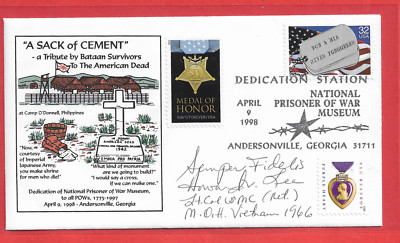 "A SACK of CEMENT"
- a Tribute by Bataan Survivors
To The American Dead
at Camp O'Donnell, Philippines
"Now, by
courtesy of
Imperial
Japanese Army,
you make shrine
for men who die!"
"What kind of monument
are we going to build?"
"I would say a cross,
if we can make one."
Dedication of National Prisoner of War Museum,
to all POWs, 1775-1997
April 9, 1998 - Andersonville, Georgia
MEDAL OF
HONOR
FOR A MIA
NEVER FORGOTTEN
32
USA
DEDICATION STATION
APRIL
9
1998
NATIONAL
PRISONER OF WAR
MUSEUM
ANDERSONVILLE, GEORGIA 31711
Semper Fidelis
Howard V. Lee
Lt. Col USMC (Ret)
M.O.H. Vietnam 1966